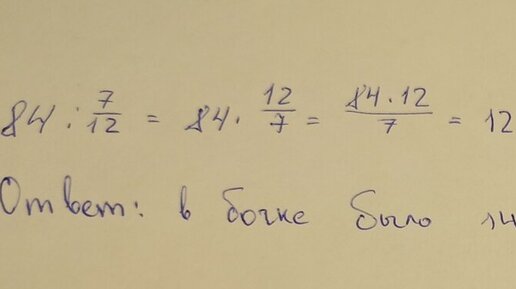 84 : 7/12 = 84 · 12/7 = 84 · 12/7 = 12
Ответ: в бочке было 14